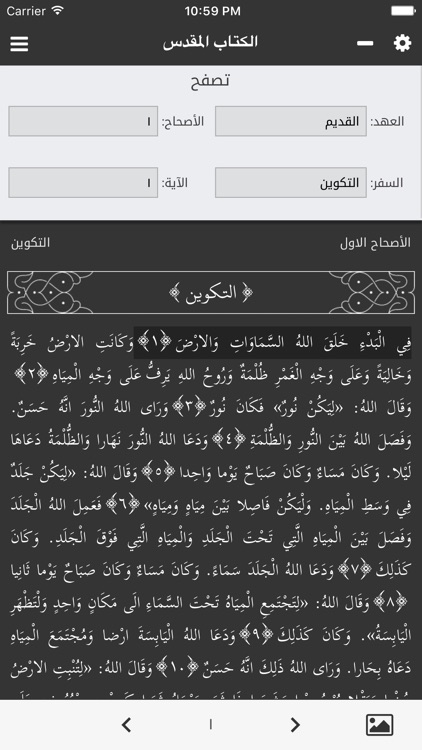 Carrier 10:59 PM
الكتاب المقدس
تصفح
العهد: القديم الأصحاح: ١
السفر: التكوين الآية: ١
الأصحاح الاول التكوين
﴿ التكوين ﴾
فِي الْبَدْءِ خَلَقَ اللهُ السَّمَاوَاتِ وَالارْضَ ﴿١﴾ وَكَانَتِ الارْضُ خَرِبَةً
وَخَالِيَةً وَعَلَى وَجْهِ الْغَمْرِ ظُلْمَةٌ وَرُوحُ اللهِ يَرِفُّ عَلَى وَجْهِ الْمِيَاهِ ﴿٢﴾
وَقَالَ اللهُ: «لِيَكُنْ نُورٌ» فَكَانَ نُورٌ ﴿٣﴾ وَرَاى اللهُ النُّورَ انَّهُ حَسَنٌ.
وَفَصَلَ اللهُ بَيْنَ النُّورِ وَالظُّلْمَةِ ﴿٤﴾ وَدَعَا اللهُ النُّورَ نَهَارا وَالظُّلْمَةُ دَعَاهَا
لَيْلا. وَكَانَ مَسَاءٌ وَكَانَ صَبَاحٌ يَوْما وَاحِدا ﴿٥﴾ وَقَالَ اللهُ: «لِيَكُنْ جَلَدٌ
فِي وَسَطِ الْمِيَاهِ. وَلْيَكُنْ فَاصِلا بَيْنَ مِيَاهٍ وَمِيَاهٍ» ﴿٦﴾ فَعَمِلَ اللهُ الْجَلَدَ
وَفَصَلَ بَيْنَ الْمِيَاهِ الَّتِي تَحْتَ الْجَلَدِ وَالْمِيَاهِ الَّتِي فَوْقَ الْجَلَدِ. وَكَانَ
كَذَلِكَ ﴿٧﴾ وَدَعَا اللهُ الْجَلَدَ سَمَاءً. وَكَانَ مَسَاءٌ وَكَانَ صَبَاحٌ يَوْما ثَانِيا
﴿٨﴾ وَقَالَ اللهُ: «لِتَجْتَمِعِ الْمِيَاهُ تَحْتَ السَّمَاءِ الَى مَكَانٍ وَاحِدٍ وَلْتَظْهَرِ
الْيَابِسَةُ». وَكَانَ كَذَلِكَ ﴿٩﴾ وَدَعَا اللهُ الْيَابِسَةَ ارْضا وَمُجْتَمَعَ الْمِيَاهِ
دَعَاهُ بِحَارا. وَرَاى اللهُ ذَلِكَ انَّهُ حَسَنٌ ﴿١٠﴾ وَقَالَ اللهُ: «لِتُنْبِتِ الارْضُ
١